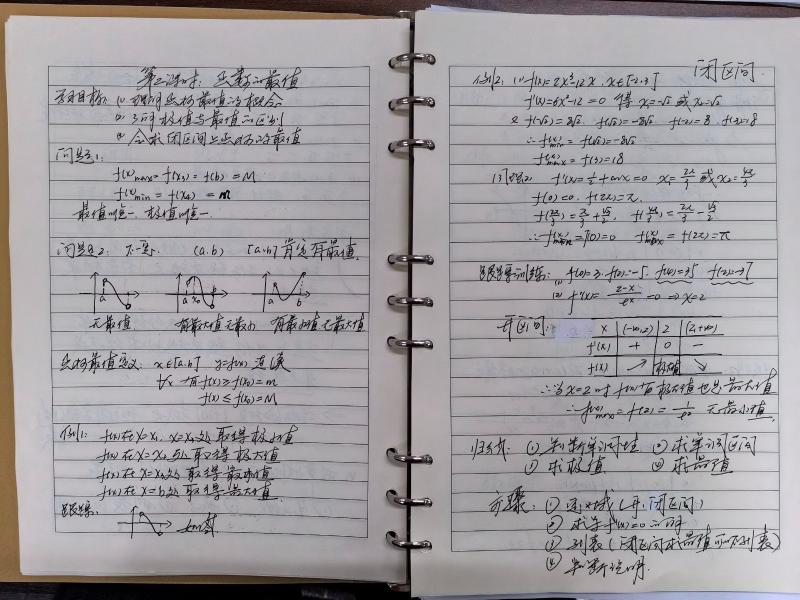 第二课时：函数的最值
学习目标：(1) 理解函数最值的概念
(2) 了解极值与最值的区别
(3) 会求闭区间上函数的最值
问题1：
f(x)max = f(x3) = f(b) = M
f(x)min = f(x4) = m
最值唯一，极值唯一
问题2：不一定。 (a,b) [a,b] 肯定有最值
a b
a x0 b
a b
无最值 有最大值无最小 有最小值无最大值
函数最值定义： x∈[a,b] y=f(x) 连续
∀x 有f(x)≥f(x0)=m
f(x)≤f(x0)=M
例1： f(x)在x=x1, x=x4处取得极小值
f(x)在x=x3处取得极大值
f(x)在x=x4处取得最小值
f(x)在x=b处取得最大值
跟踪：
闭区间
例2：(1) f(x)=2x³-12x, x∈[-2,3]
f'(x)=6x²-12=0 得 x1=-√2 或 x2=√2
又 f(-√2)=8√2 f(√2)=-8√2 f(-2)=8 f(3)=18
∴f(x)min=f(√2)=-8√2
f(x)max=f(3)=18
f'(x)=1/2+cosx=0 x1=2π/3 或 x2=4π/3
f(0)=0. f(2π)=π.
f(2π/3)=π/3+√3/2, f(4π/3)=2π/3-√3/2
∴f(x)min=f(0)=0 f(x)max=f(2π)=π
跟踪训练：
(2) f'(x)=(2-x)/e^x=0 ⇒ x=2
开区间： x (-∞,2) 2 (2,+∞)
f'(x) + 0 −
f(x) ↗ 极大值 ↘
∴当x=2时f(x)有极大值也是最大值
∴f(x)max=f(2)=1/e² 无最小值
归纳： ① 判断单调性 ② 求单调区间
③ 求极值 ④ 求最值
步骤：① 定义域(开、闭区间)
② 求导f'(x)=0的解
③ 列表(闭区间求最值可以不列表)
④ 判断说明.